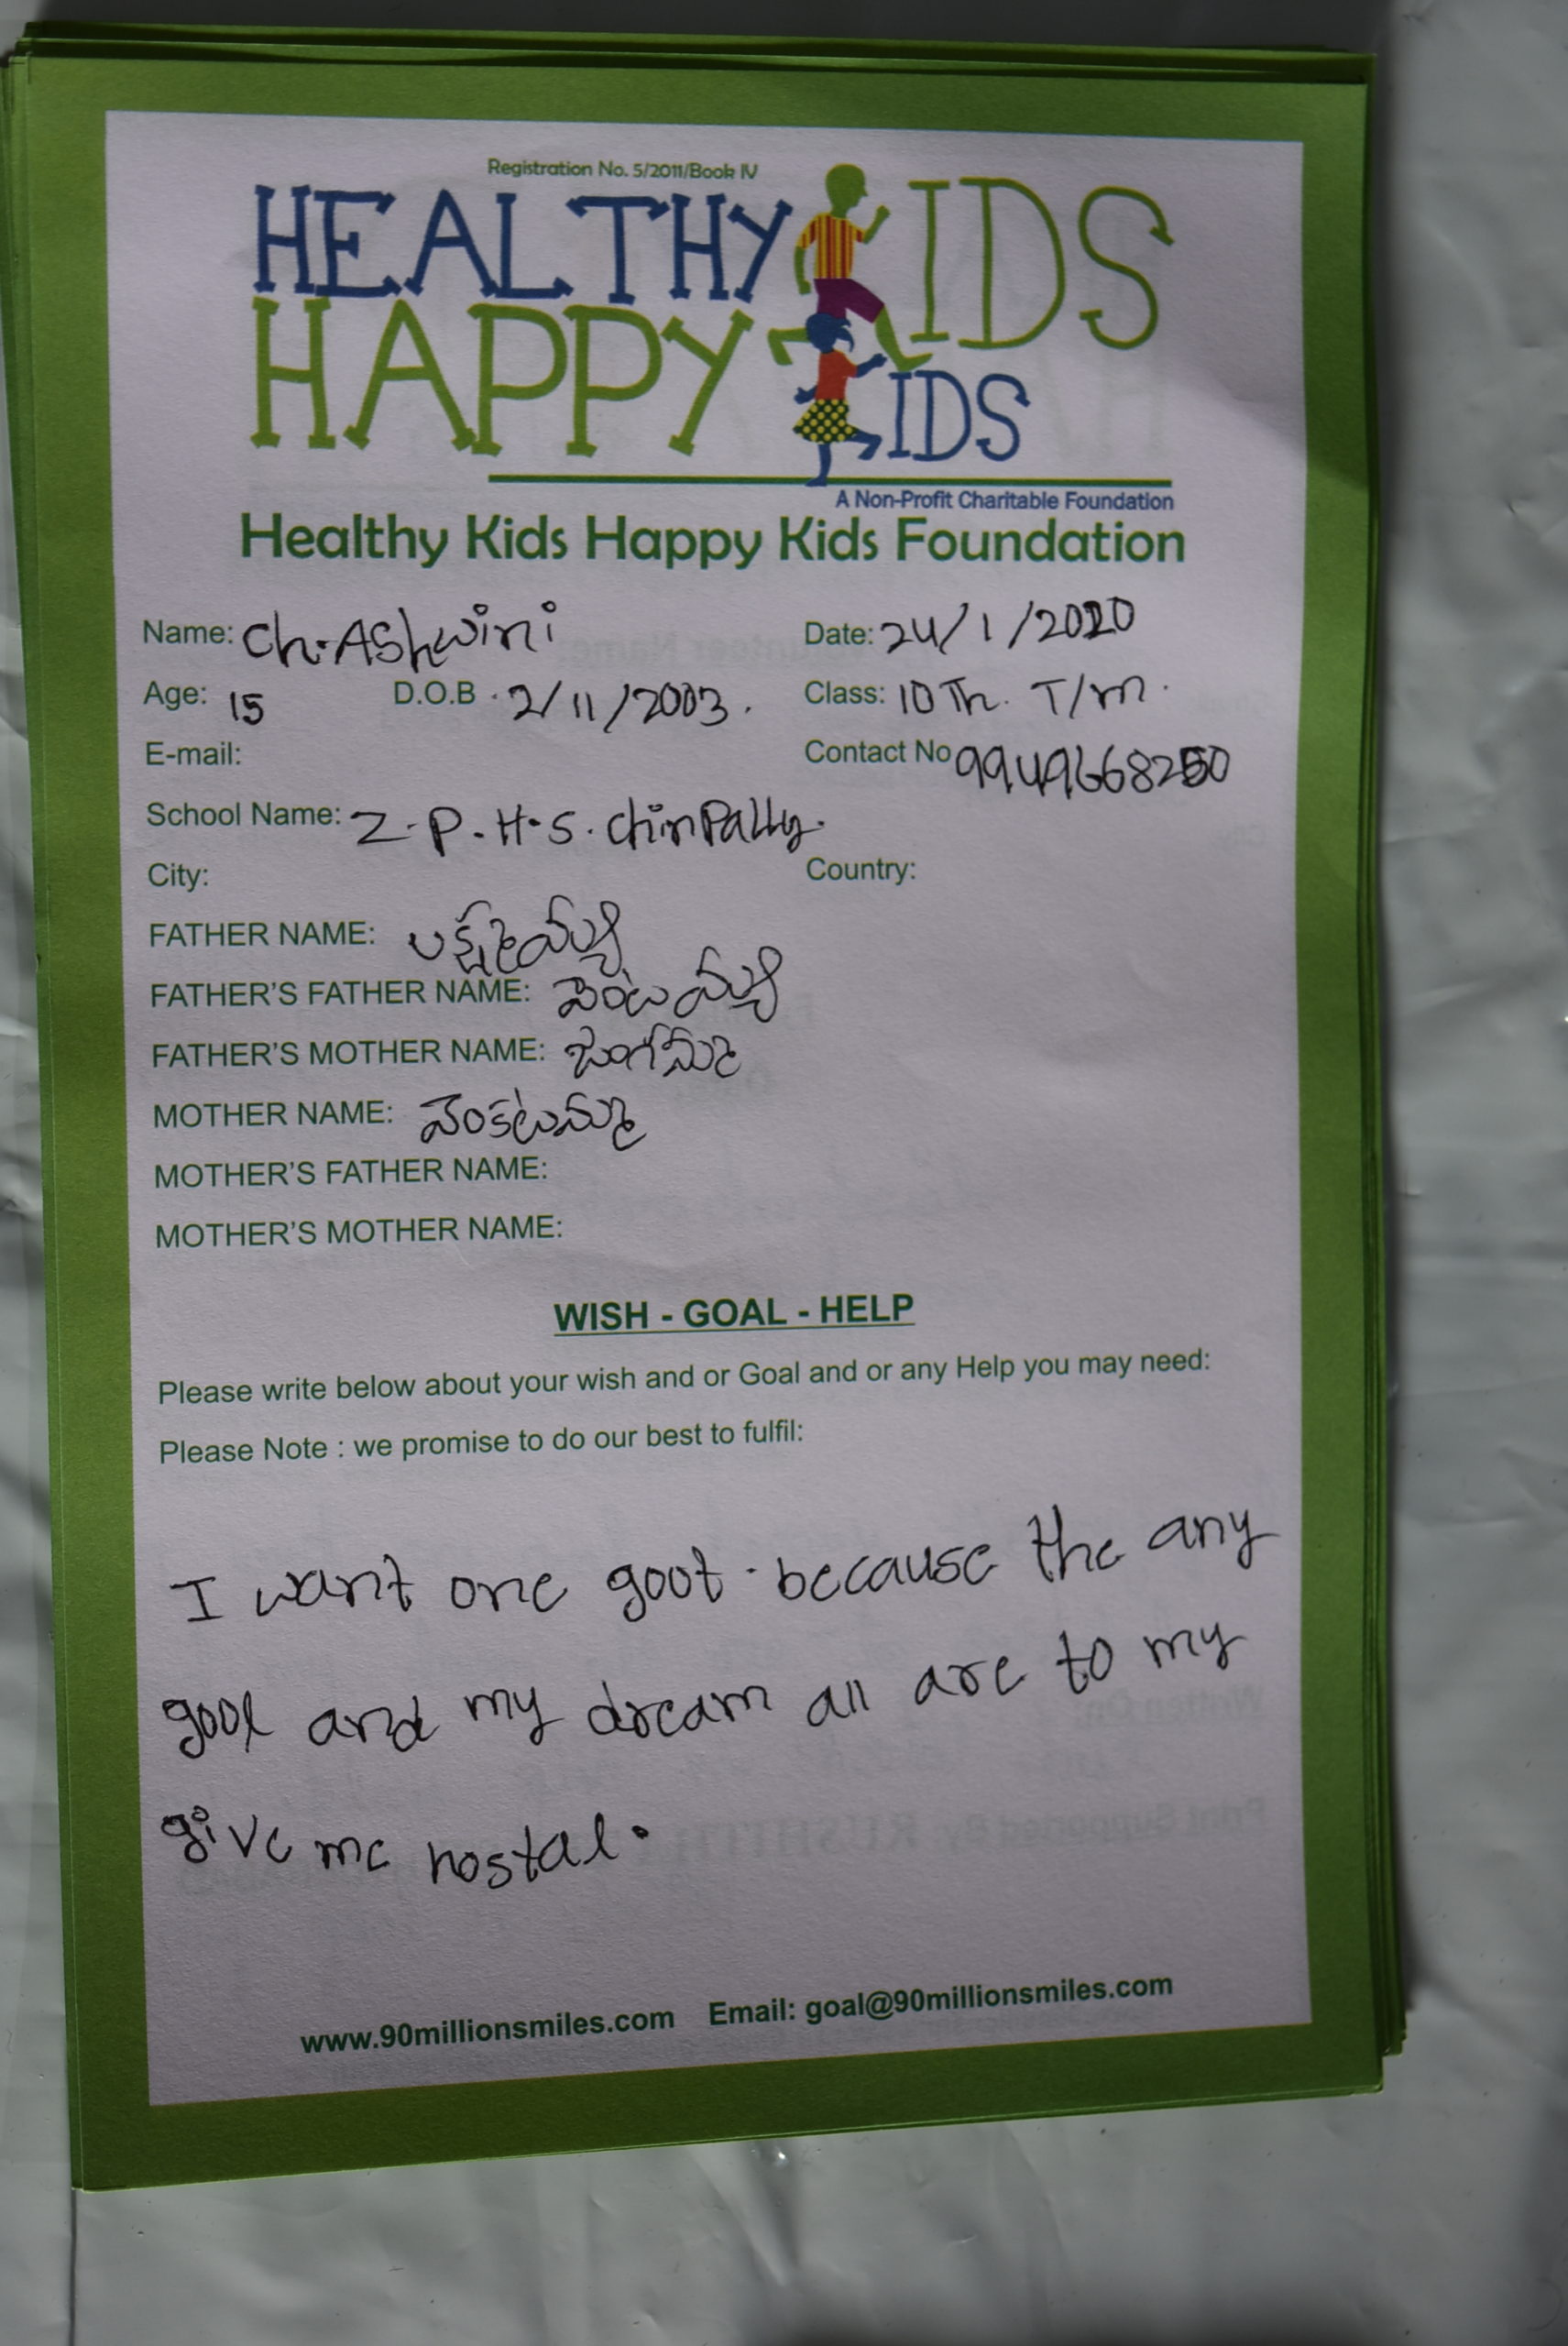 Registration No. 5/2011/Book IV
HEALTHY KIDS
HAPPY KIDS
A Non-Profit Charitable Foundation
Healthy Kids Happy Kids Foundation
Name: Ch. Ashwini Date: 24/1/2020
Age: 15 D.O.B. 2/11/2003. Class: 10 Th. T/m.
E-mail: Contact No 9949668250
School Name: Z.P.H.S. chinPally.
City: Country:
FATHER NAME: లక్ష్మయ్య
FATHER'S FATHER NAME: పెంటయ్య
FATHER'S MOTHER NAME: జంగమ్మ
MOTHER NAME: వెంకటమ్మ
MOTHER'S FATHER NAME:
MOTHER'S MOTHER NAME:
WISH - GOAL - HELP
Please write below about your wish and or Goal and or any Help you may need:
Please Note : we promise to do our best to fulfil:
I want one goot. because the any
gool and my dream all are to my
give me hostal.
www.90millionsmiles.com Email: goal@90millionsmiles.com